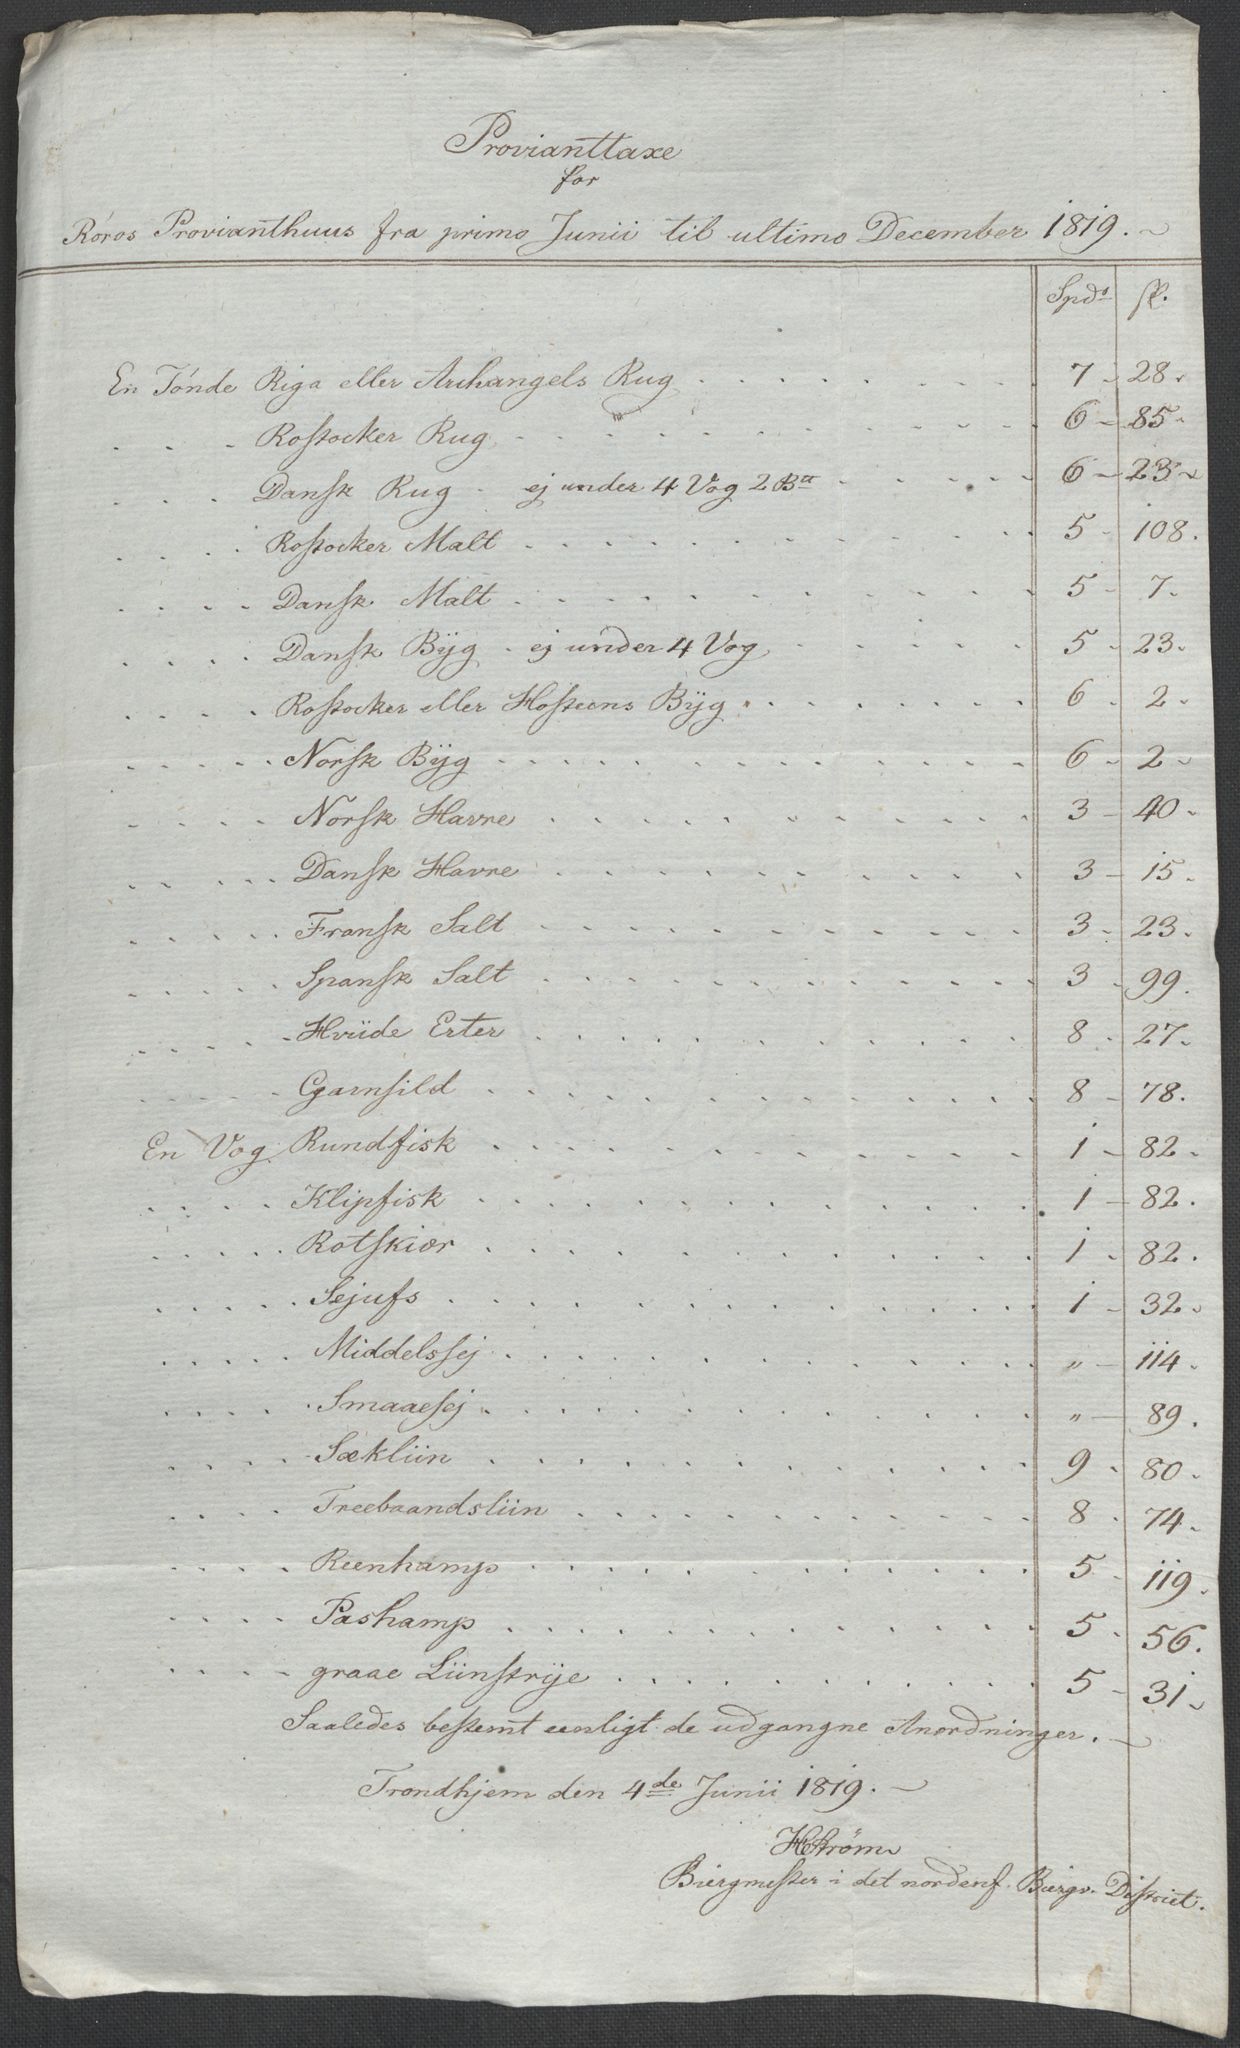 Provianttaxe
for
Röros Provianthuus fra primo Junii til ultimo December 1819.
Spd. sk.
En Tönde Riga eller Archangels Rug 7 - 28.
Rostocker Rug 6 - 85.
Dansk Rug - ej under 4 Vog 2 B 6 - 23.
Rostocker Malt 5 - 108.
Dansk Malt 5 - 7.
Dansk Byg - ej under 4 Vog 5 - 23.
Rostocker eller Hosteens Byg 6 - 2.
Norsk Byg 6 - 2.
Norsk Havre 3 - 40.
Dansk Havre 3 - 15.
Fransk Salt 3 - 23.
Spansk Salt 3 - 99.
Hviide Erter 8 - 27.
Garnsild 8 - 78.
En Vog Rundfisk 1 - 82.
Klipfisk 1 - 82.
Rotskiær 1 - 82.
Sejufs 1 - 32.
Middelssej " - 114.
Smaaesej " - 89.
Sækliin 9 - 80.
Treebaandsliin 8 - 74.
Reenhamp 5 - 119.
Pashamp 5 - 56.
graae Liinstrye 5 - 31.
Saaledes bestemt eenligt de udgangne Anordninger.
Trondhjem den 4de Junii 1819.
HStrøm
Biergmester i det nordenf. Biergv. District.